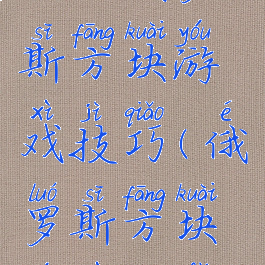 sī fāng kuài yóu
斯方块游
xì jì qiǎo é
戏技巧(俄
luó sī fāng kuài
罗斯方块